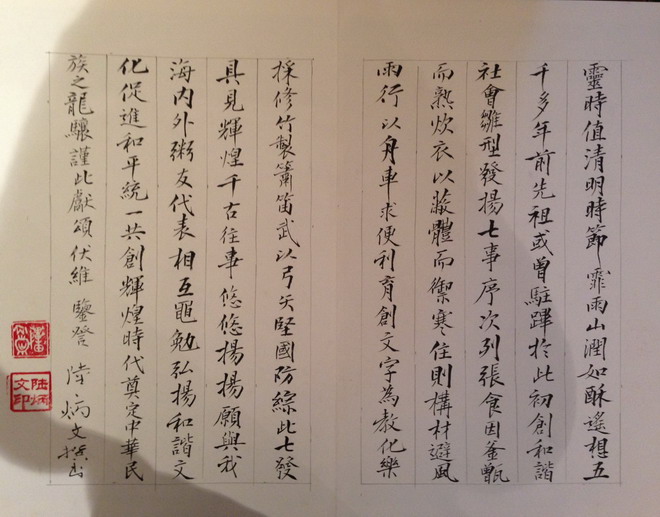 靈時值清明時節霏雨山潤如酥遙想五
千多年前先祖或曾駐蹕於此初創和諧
社會雛型發揚七事序次列張食因釜甑
而熟炊衣以蔽體而禦寒住則構材避風
雨行以舟車求便利育創文字為教化樂
採修竹製簫笛武以弓矢堅國防綜此七發
具見輝煌千古往事悠悠揚揚願與我
海内外粥友代表相互黽勉弘揚和諧文
化促進和平統一共創輝煌時代奠定中華民
族之龍驤謹此獻頌伏維鑒登 陸炳文撰
陸炳文印